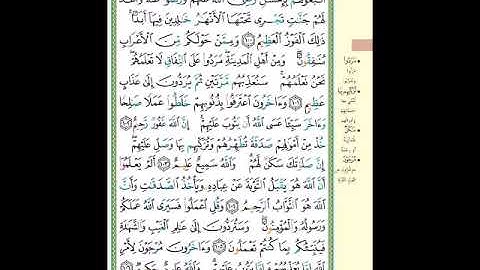 اتَّبَعُوهُم بِإِحْسَٰنٍ رَّضِىَ ٱللَّهُ عَنْهُمْ وَرَضُوا۟ عَنْهُ وَأَعَدَّ
لَهُمْ جَنَّٰتٍ تَجْرِى تَحْتَهَا ٱلْأَنْهَٰرُ خَٰلِدِينَ فِيهَآ أَبَدًا ۚ
ذَٰلِكَ ٱلْفَوْزُ ٱلْعَظِيمُ ١٠٠ وَمِمَّنْ حَوْلَكُم مِّنَ ٱلْأَعْرَابِ
مُنَٰفِقُونَ ۖ وَمِنْ أَهْلِ ٱلْمَدِينَةِ ۖ مَرَدُوا۟ عَلَى ٱلنِّفَاقِ لَا تَعْلَمُهُمْ ۖ
نَحْنُ نَعْلَمُهُمْ ۚ سَنُعَذِّبُهُم مَّرَّتَيْنِ ثُمَّ يُرَدُّونَ إِلَىٰ عَذَابٍ
عَظِيمٍ ١٠١ وَءَاخَرُونَ ٱعْتَرَفُوا۟ بِذُنُوبِهِمْ خَلَطُوا۟ عَمَلًا صَٰلِحًا
وَءَاخَرَ سَيِّئًا عَسَى ٱللَّهُ أَن يَتُوبَ عَلَيْهِمْ ۚ إِنَّ ٱللَّهَ غَفُورٌ رَّحِيمٌ ١٠٢
خُذْ مِنْ أَمْوَٰلِهِمْ صَدَقَةً تُطَهِّرُهُمْ وَتُزَكِّيهِم بِهَا وَصَلِّ عَلَيْهِمْ ۖ
إِنَّ صَلَوٰتَكَ سَكَنٌ لَّهُمْ ۗ وَٱللَّهُ سَمِيعٌ عَلِيمٌ ١٠٣ أَلَمْ يَعْلَمُوٓا۟
أَنَّ ٱللَّهَ هُوَ يَقْبَلُ ٱلتَّوْبَةَ عَنْ عِبَادِهِۦ وَيَأْخُذُ ٱلصَّدَقَٰتِ وَأَنَّ
ٱللَّهَ هُوَ ٱلتَّوَّابُ ٱلرَّحِيمُ ١٠٤ وَقُلِ ٱعْمَلُوا۟ فَسَيَرَى ٱللَّهُ عَمَلَكُمْ
وَرَسُولُهُۥ وَٱلْمُؤْمِنُونَ ۖ وَسَتُرَدُّونَ إِلَىٰ عَٰلِمِ ٱلْغَيْبِ وَٱلشَّهَٰدَةِ
فَيُنَبِّئُكُم بِمَا كُنتُمْ تَعْمَلُونَ ١٠٥ وَءَاخَرُونَ مُرْجَوْنَ لِأَمْرِ
ٱللَّهِ إِمَّا يُعَذِّبُهُمْ وَإِمَّا يَتُوبُ عَلَيْهِمْ ۗ وَٱللَّهُ عَلِيمٌ حَكِيمٌ ١٠٦